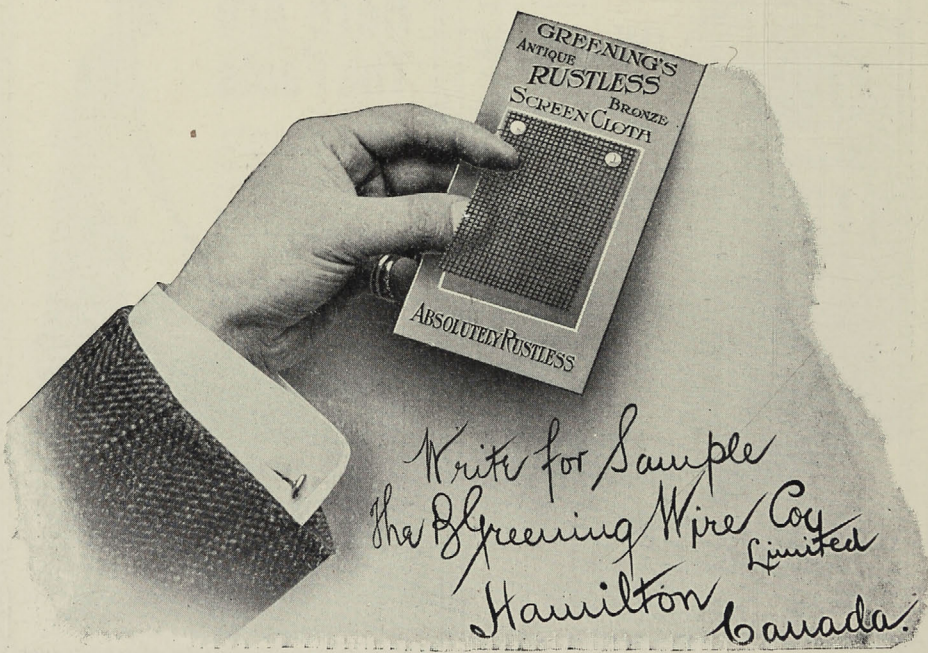 GREENING'S
ANTIQUE
RUSTLESS
BRONZE
SCREEN CLOTH
ABSOLUTELY RUSTLESS
Write for Sample
The B Greening Wire Coy
Limited
Hamilton
Canada.